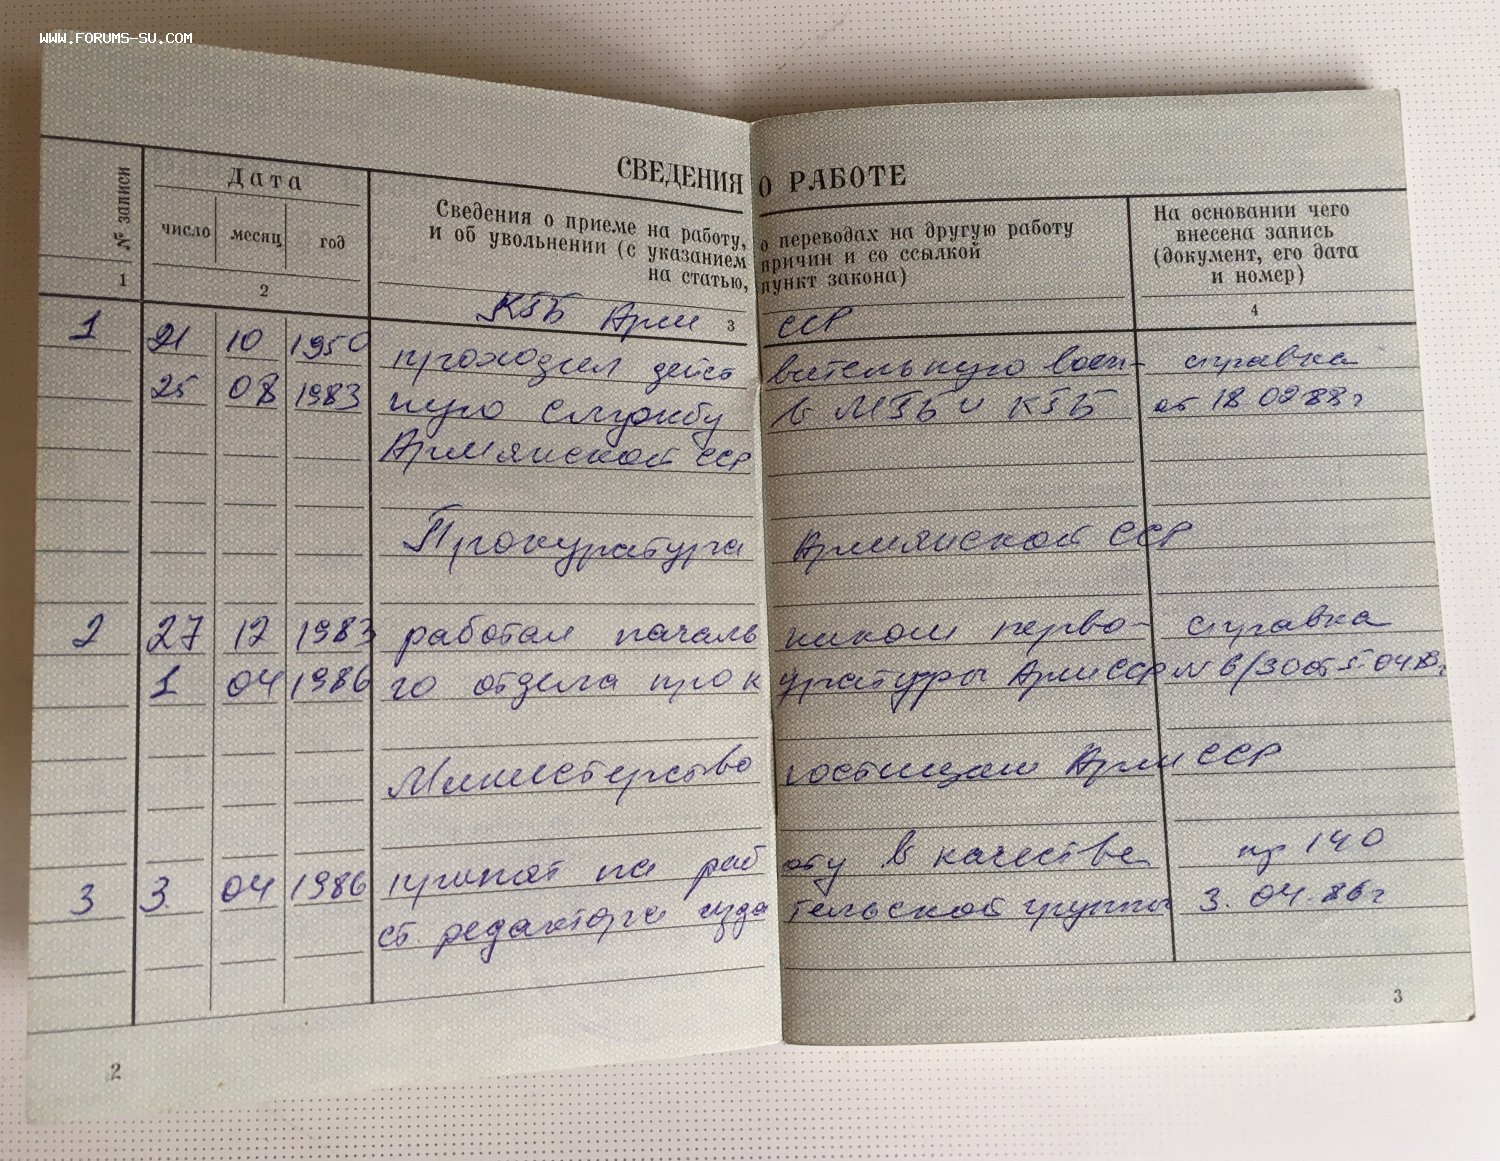 WWW.FORUMS-SU.COM
СВЕДЕНИЯ О РАБОТЕ
№ записи
Дата
число месяц год
Сведения о приеме на работу, о переводах на другую работу
и об увольнении (с указанием причин и со ссылкой
на статью, пункт закона)
На основании чего
внесена запись
(документ, его дата
и номер)
1 2 3 4
КГБ Арм ССР
1 21 10 1950 проходил действительную воен- справка
25 08 1983 ную службу в МГБ и КГБ от 18 02 88 г
Армянской ССР
Прокуратура Армянской ССР
2 27 12 1983 работал начальником перво- справка
1 04 1986 го отдела прокуратуры Арм ССР № 6/30 от
Министерство юстиции Арм ССР
3 3 04 1986 принят на работу в качестве пр 140
ст. редактора издательской группы 3. 04. 86 г
2
3